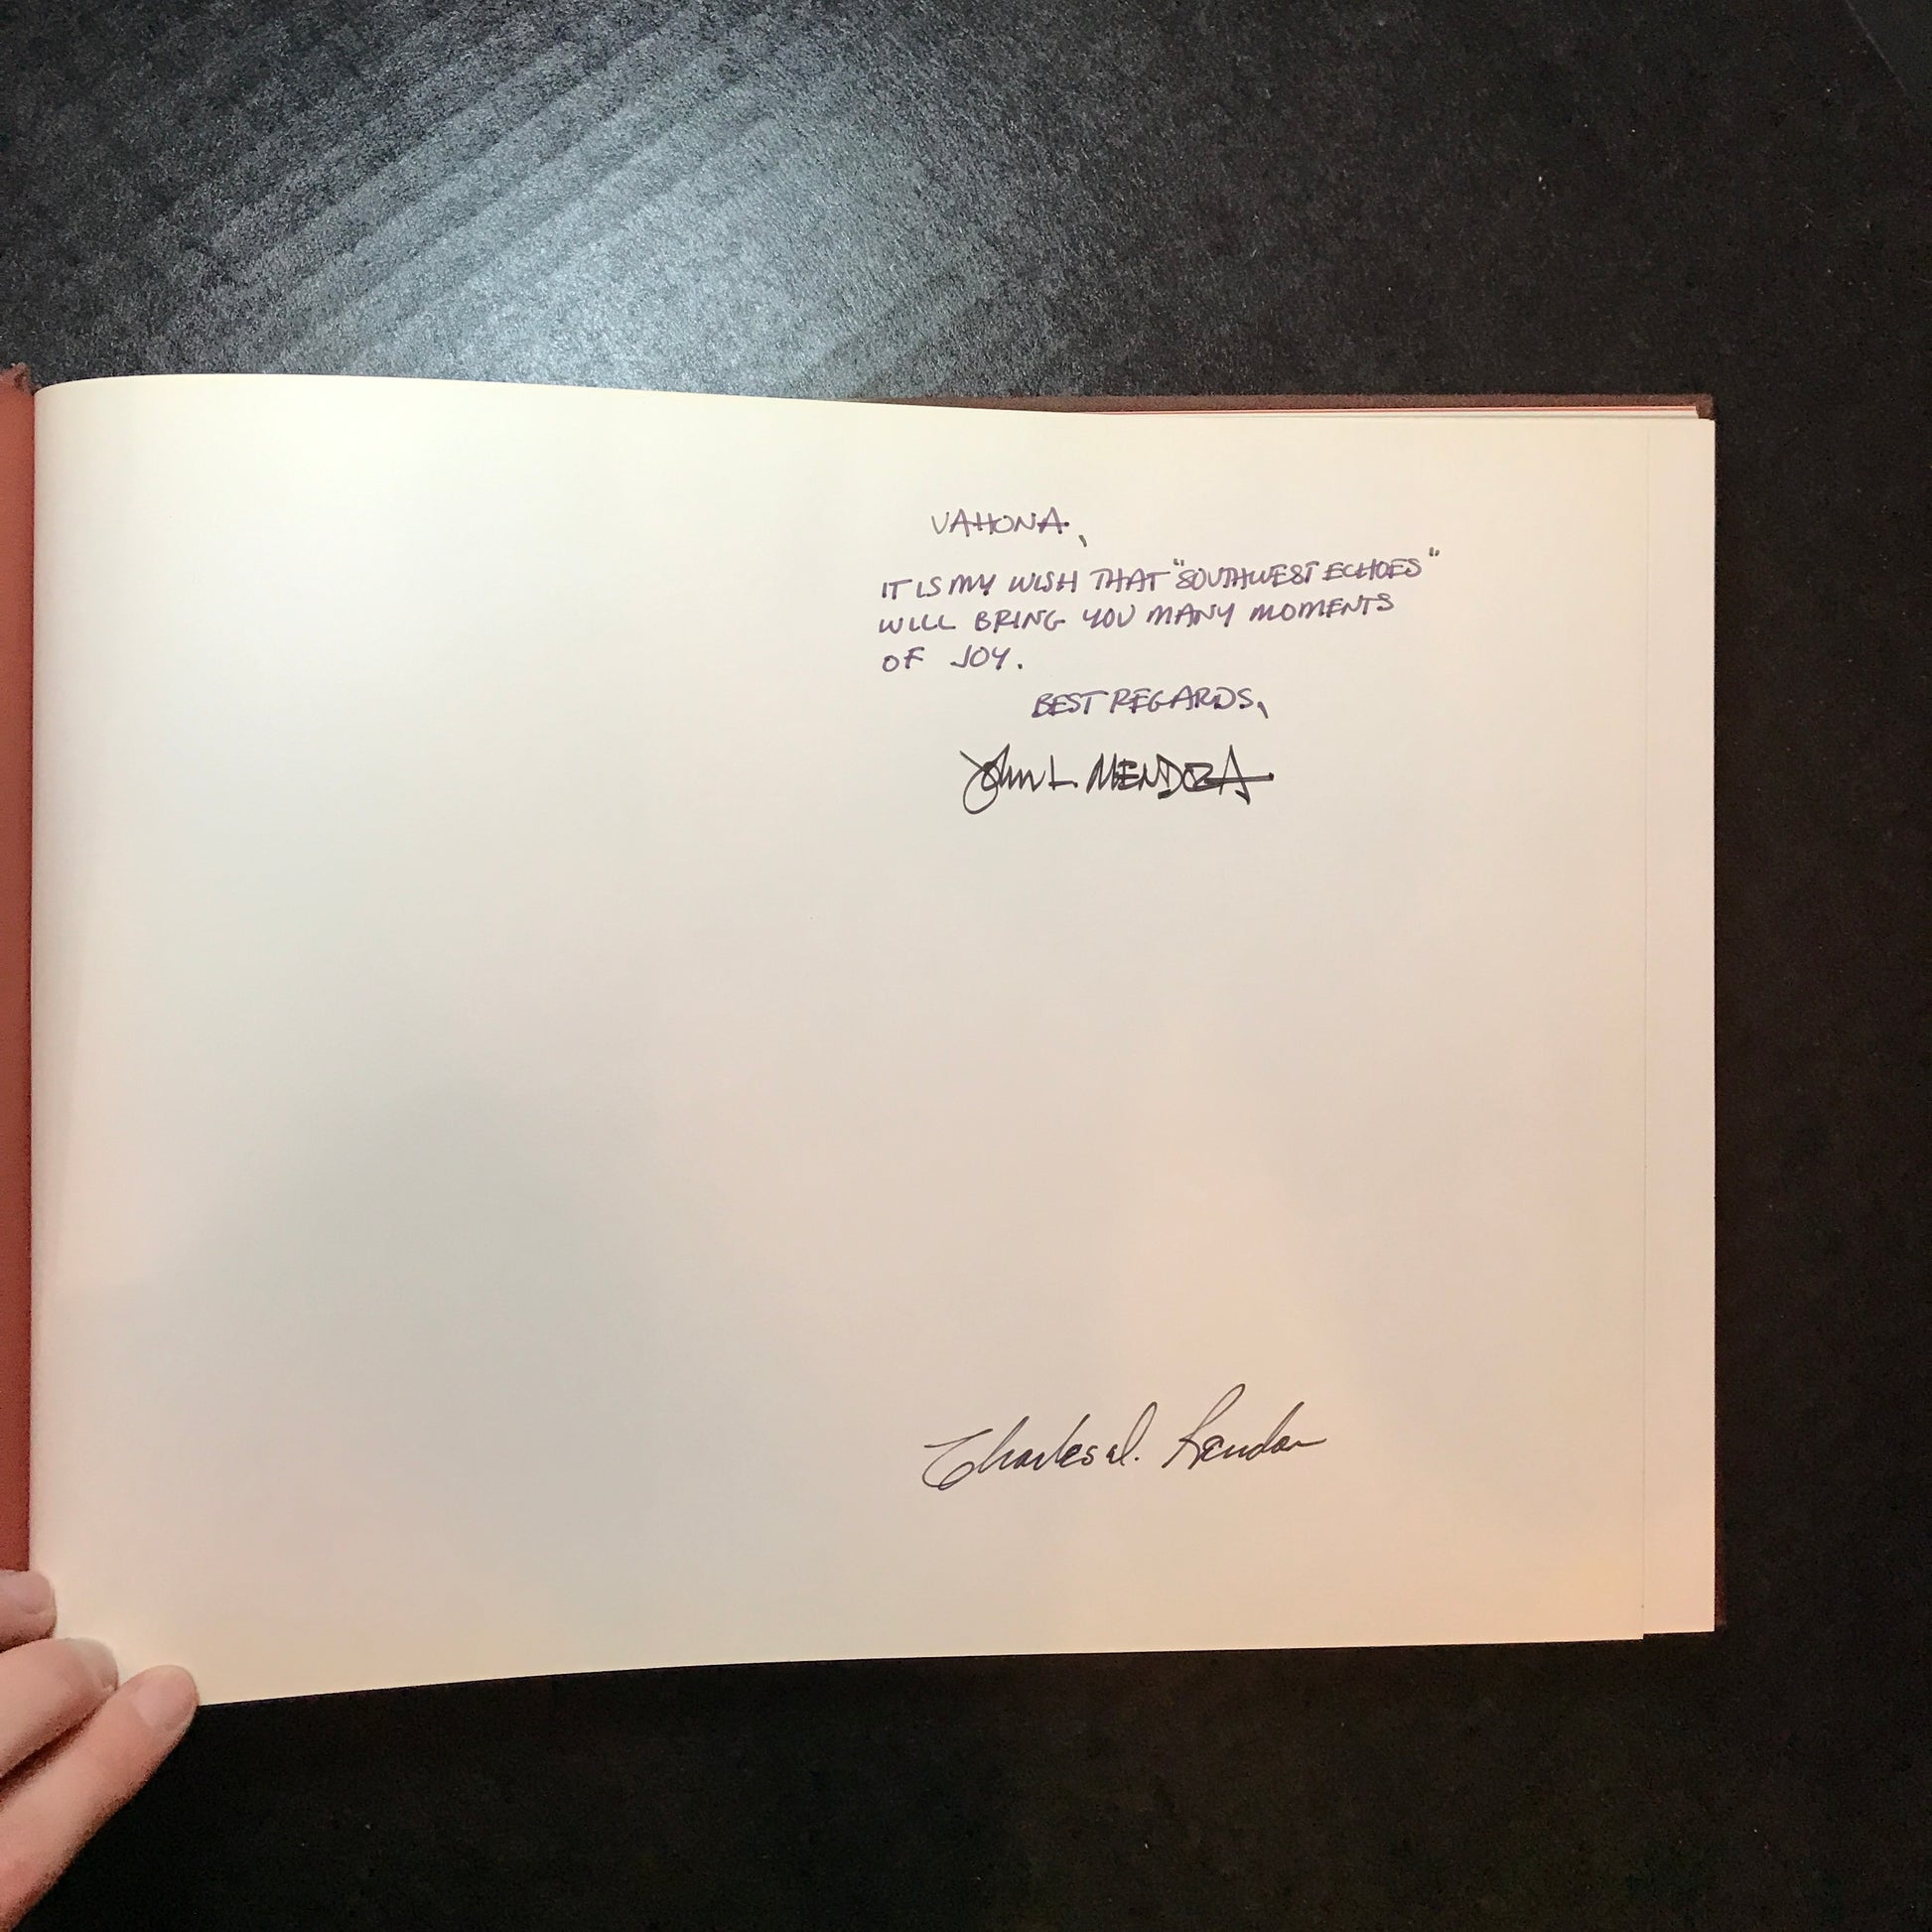 VAHONA,
IT IS MY WISH THAT "SOUTHWEST ECHOES"
WILL BRING YOU MANY MOMENTS
OF JOY.
BEST REGARDS,
John L. MENDOZA
Charles D. Rendon